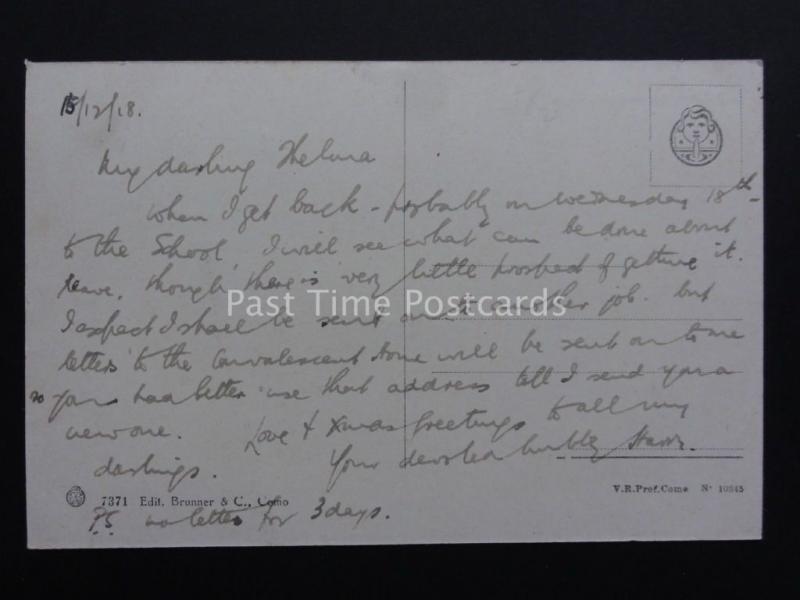 15/12/18.
My darling Thelma
When I get back - probably on Wednesday 18th -
to the School, I will see what can be done about
leave, though there is very little prospect of getting it.
I expect I shall be sent on another job. but
letters to the Convalescent Home will be sent on to me
so you had better use that address till I send you a
new one. Love & Xmas greetings to all my
darlings. Your devoted hubby
7371 Edit. Brunner & C., Como
V.R.Prof.Como N° 10345
P.S. no letter for 3 days.
Past Time Postcards